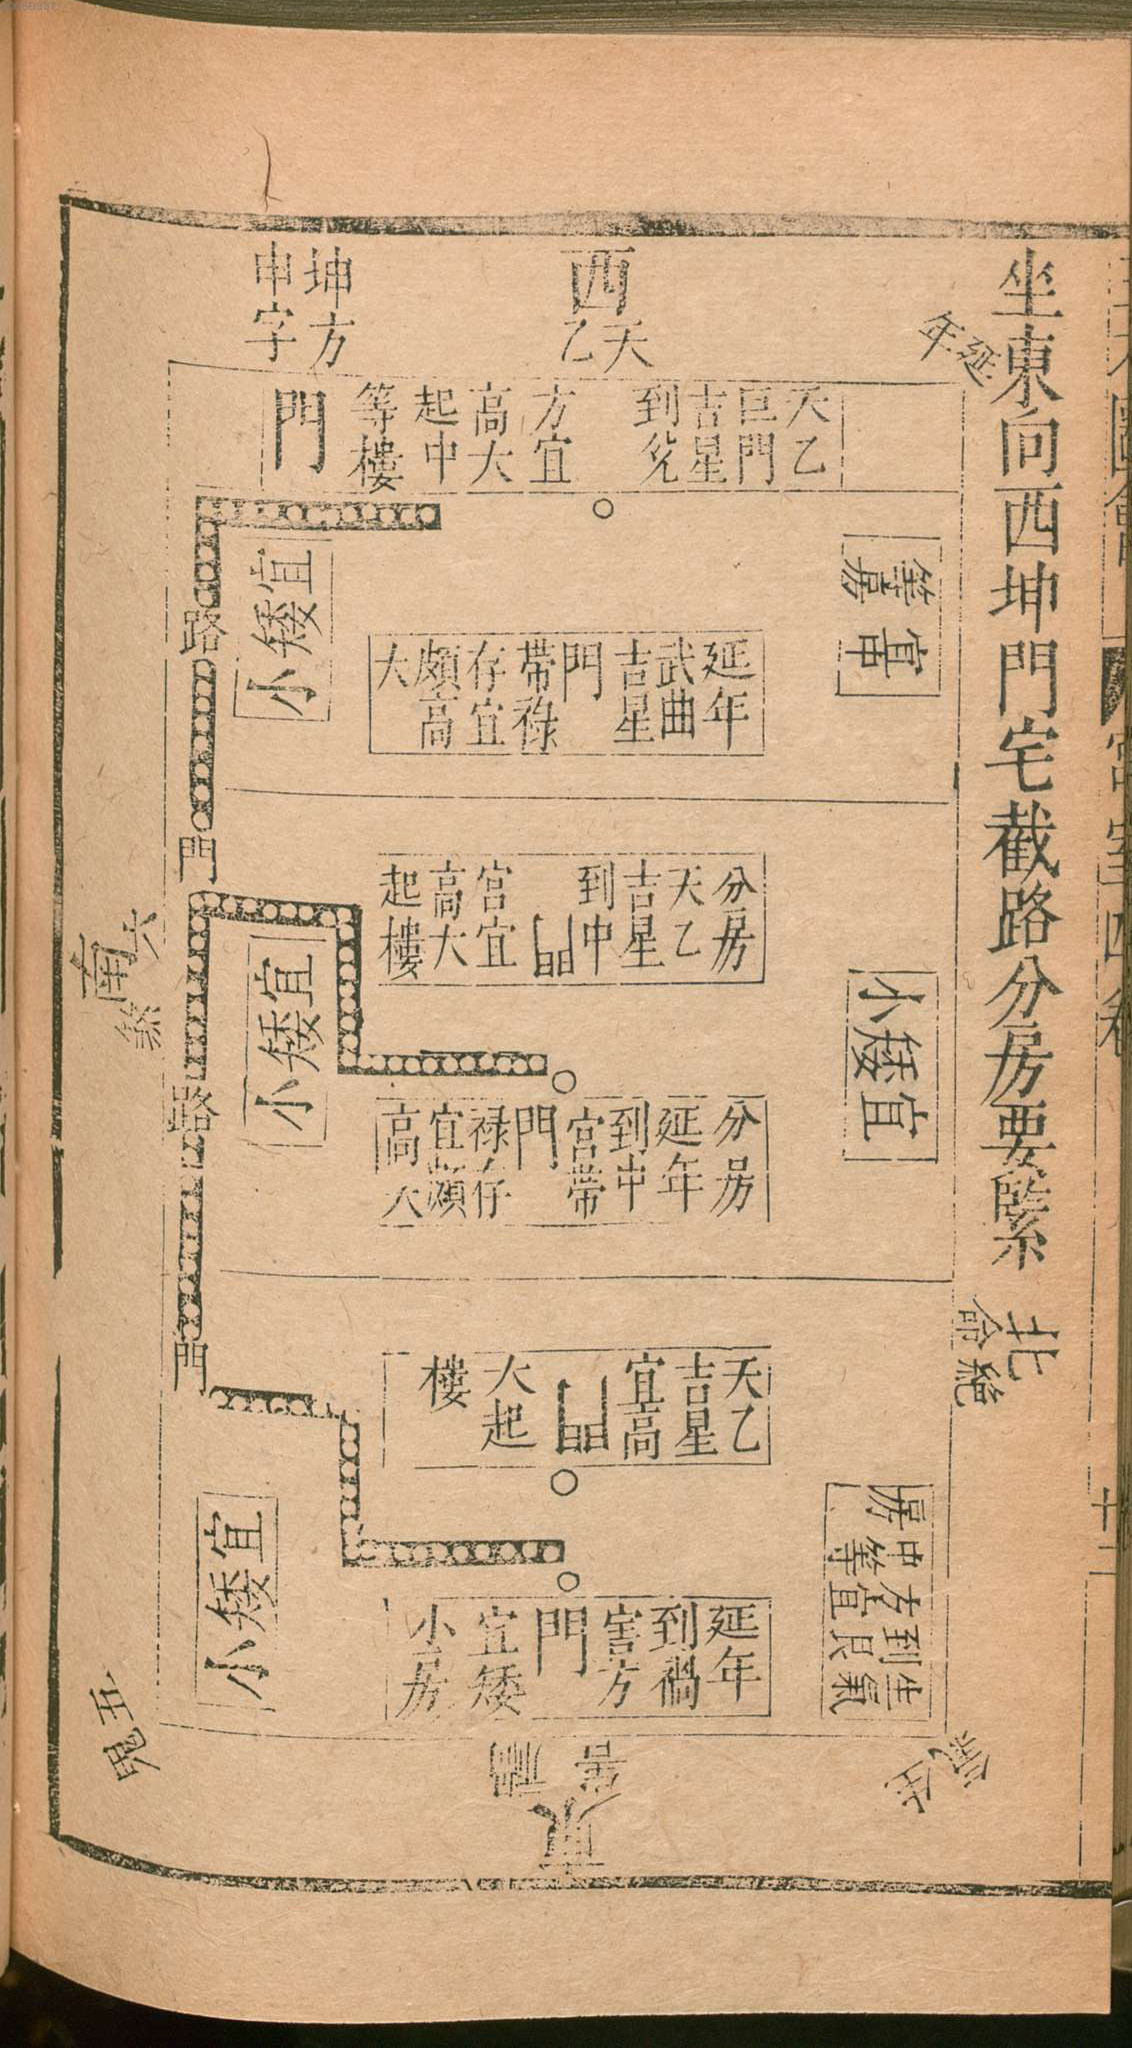 坐東向西坤門宅截路分房要緊
十二
西
天乙
延年
坤方
申字
天乙
巨門
吉星
到兊
方宜
高大
起中
等樓
門
宜矮小
路
延年
武曲
吉星
門
帶祿
存宜
頗高
大
宜中
等房
門
分房
天乙
吉星
到中
門
宮宜
高大
起樓
宜矮小
宜矮小
南
六煞
路
分房
延年
到中
宮帶
門
禄存
宜頗
高大
北
絶命
門
天乙
吉星
宜高
門
大起
樓
宜矮小
生氣
到艮
方宜
中等
房
延年
到禍
害方
門
宜矮
小房
五鬼
禍害
東
生氣